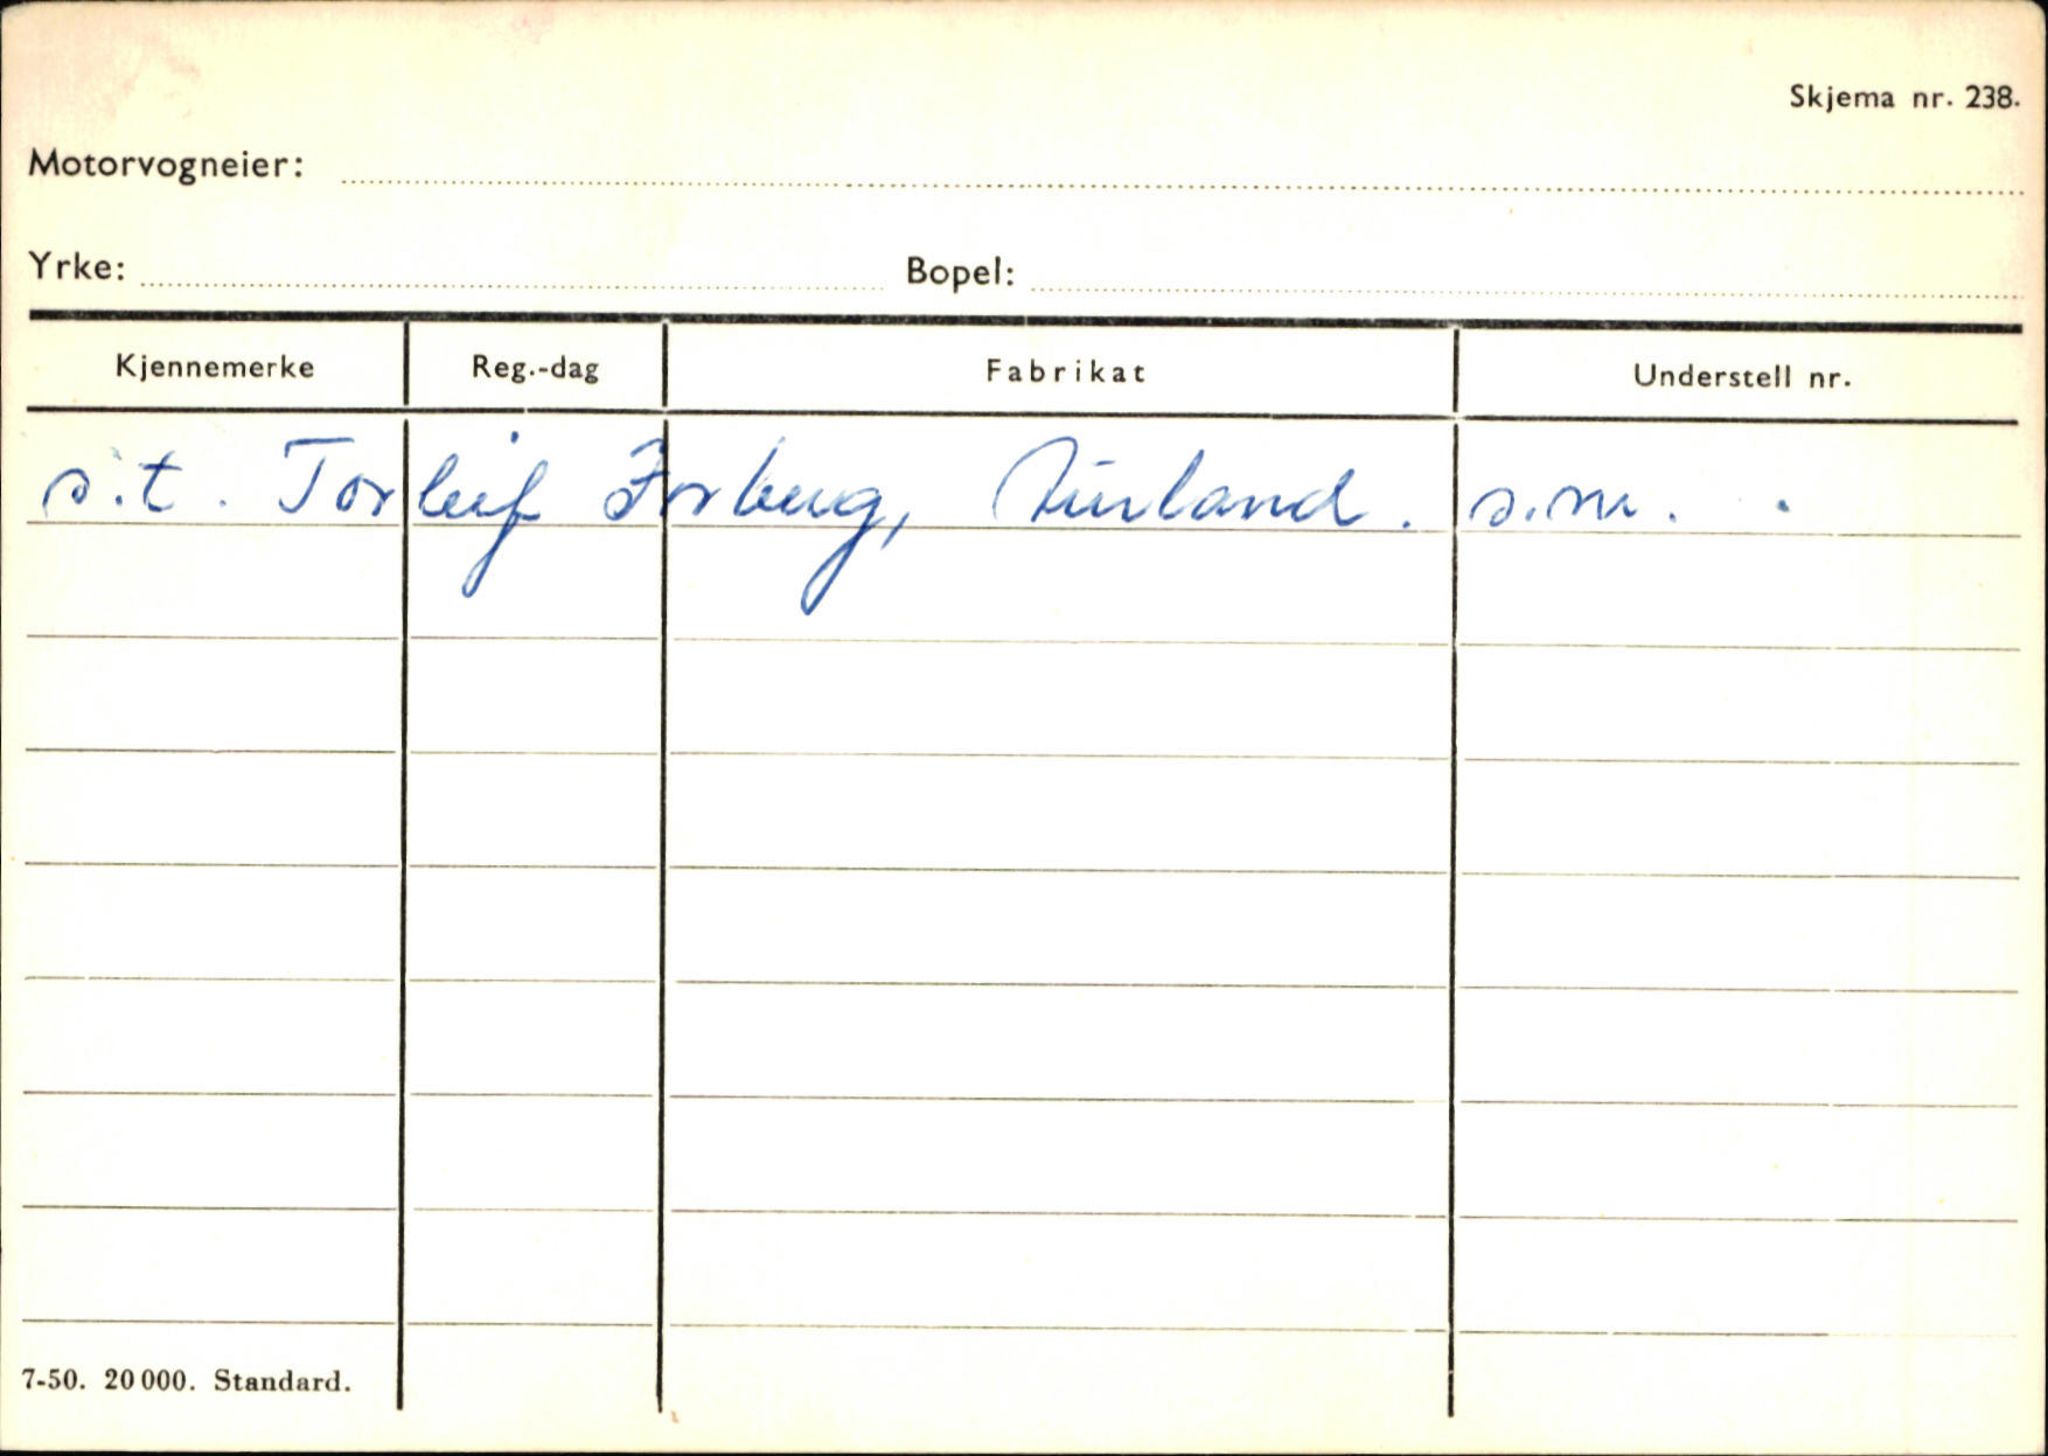 Skjema nr. 238.
Motorvogneier:
Yrke: Bopel:
Kjennemerke Reg.-dag Fabrikat Understell nr.
s.t. Torleif Forberg, Aurland. s.nr.
7-50. 20 000. Standard.